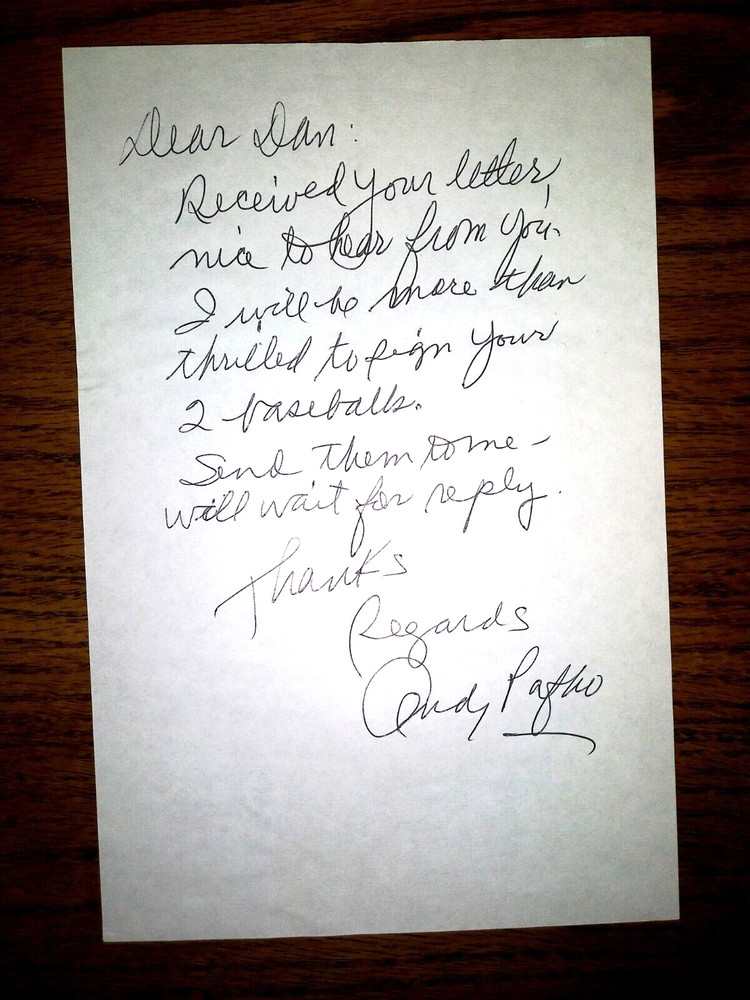 Dear Dan:
Received your letter,
nice to hear from you.
I will be more than
thrilled to sign your
2 baseballs.
Send them to me -
will wait for reply.
Thanks
Regards
Andy Pafko